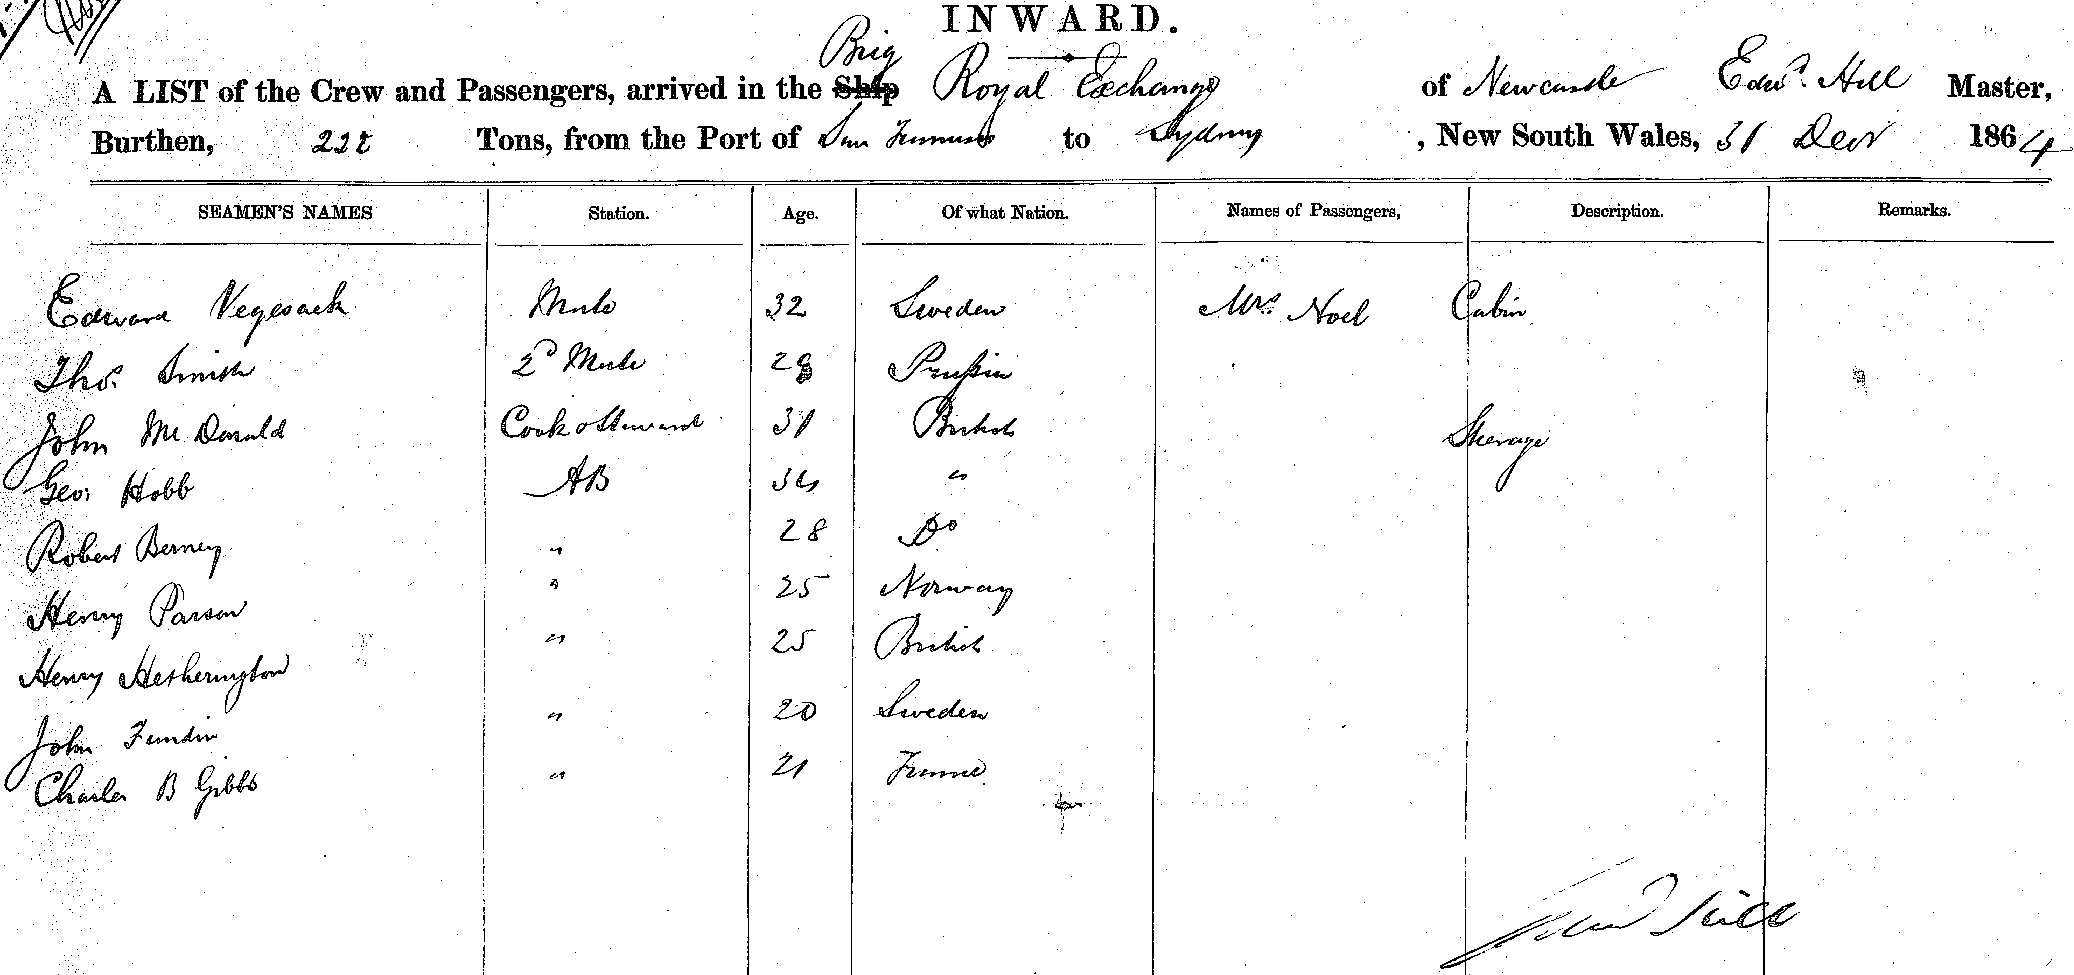 INWARD.
Brig
A LIST of the Crew and Passengers, arrived in the Ship Royal Exchange of Newcastle Edwd. Hill Master,
Burthen, 222 Tons, from the Port of San to Sydney, New South Wales, 31 Decr 1864
SEAMEN'S NAMES Station. Age. Of what Nation. Names of Passengers, Description. Remarks.
Edward Vegesack Mate 32 Sweden Mrs. Noel Cabin
Thos. Smith 2d Mate 28 Prussia
John McDonald Cook & Steward 31 British Steerage
Geo. Hobb AB 34 "
Robert Berney " 28 Do
Henry Parson " 25 Norway
Henry Hetherington " 25 British
John Fundin " 20 Sweden
Charles B Gibbs " 21
Edwd Hill